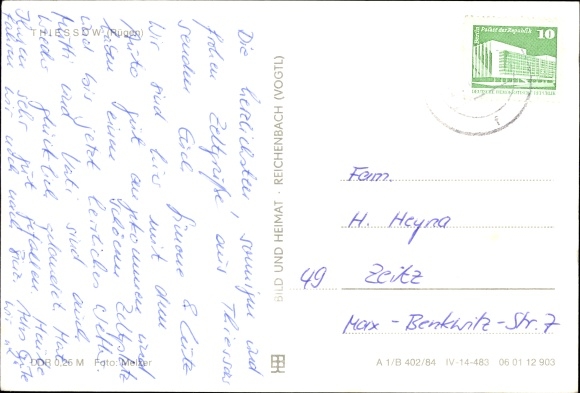 THIESSOW (Rügen)
Die herzlichsten, sonnigen und
frohen Zeltgrüße aus Thiessow
senden Euch Simone & Lutz
Wir sind hier mit dem
Auto gut angekommen und
haben einen schönen Zeltplatz
und bis jetzt herrliches Wetter.
Mutti und Vati sind auch
wieder glücklich gelandet. Hat
Ihnen sehr gut gefallen. Heute
fahren wir noch nach Binz. Alles Gute
wir 2
DDR 0,25 M Foto: Melzer
BILD UND HEIMAT · REICHENBACH (VOGTL)
Berlin Palast der Republik
10
DEUTSCHE DEMOKRATISCHE REPUBLIK
Fam.
H. Heyna
49 Zeitz
Max-Benkwitz-Str. 7
A 1/B 402/84 IV-14-483 06 01 12 903